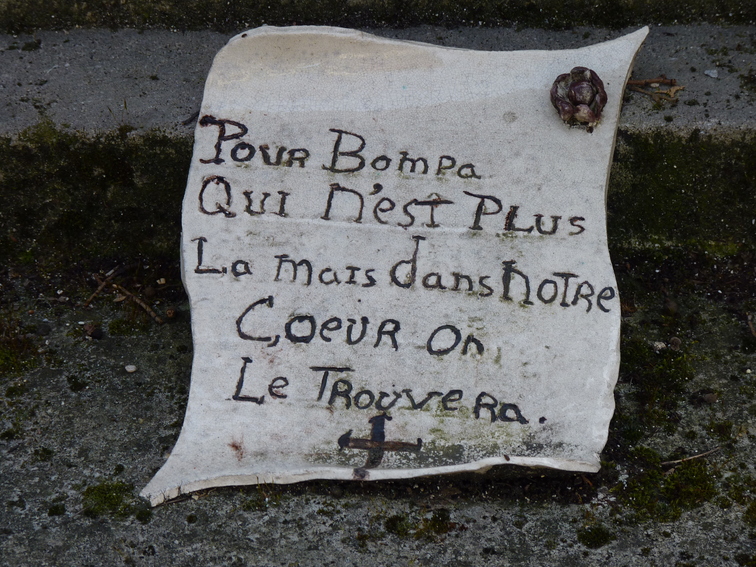 Pour Bompa
Qui n'est Plus
La mais dans notre
Coeur on
Le Trouvera.